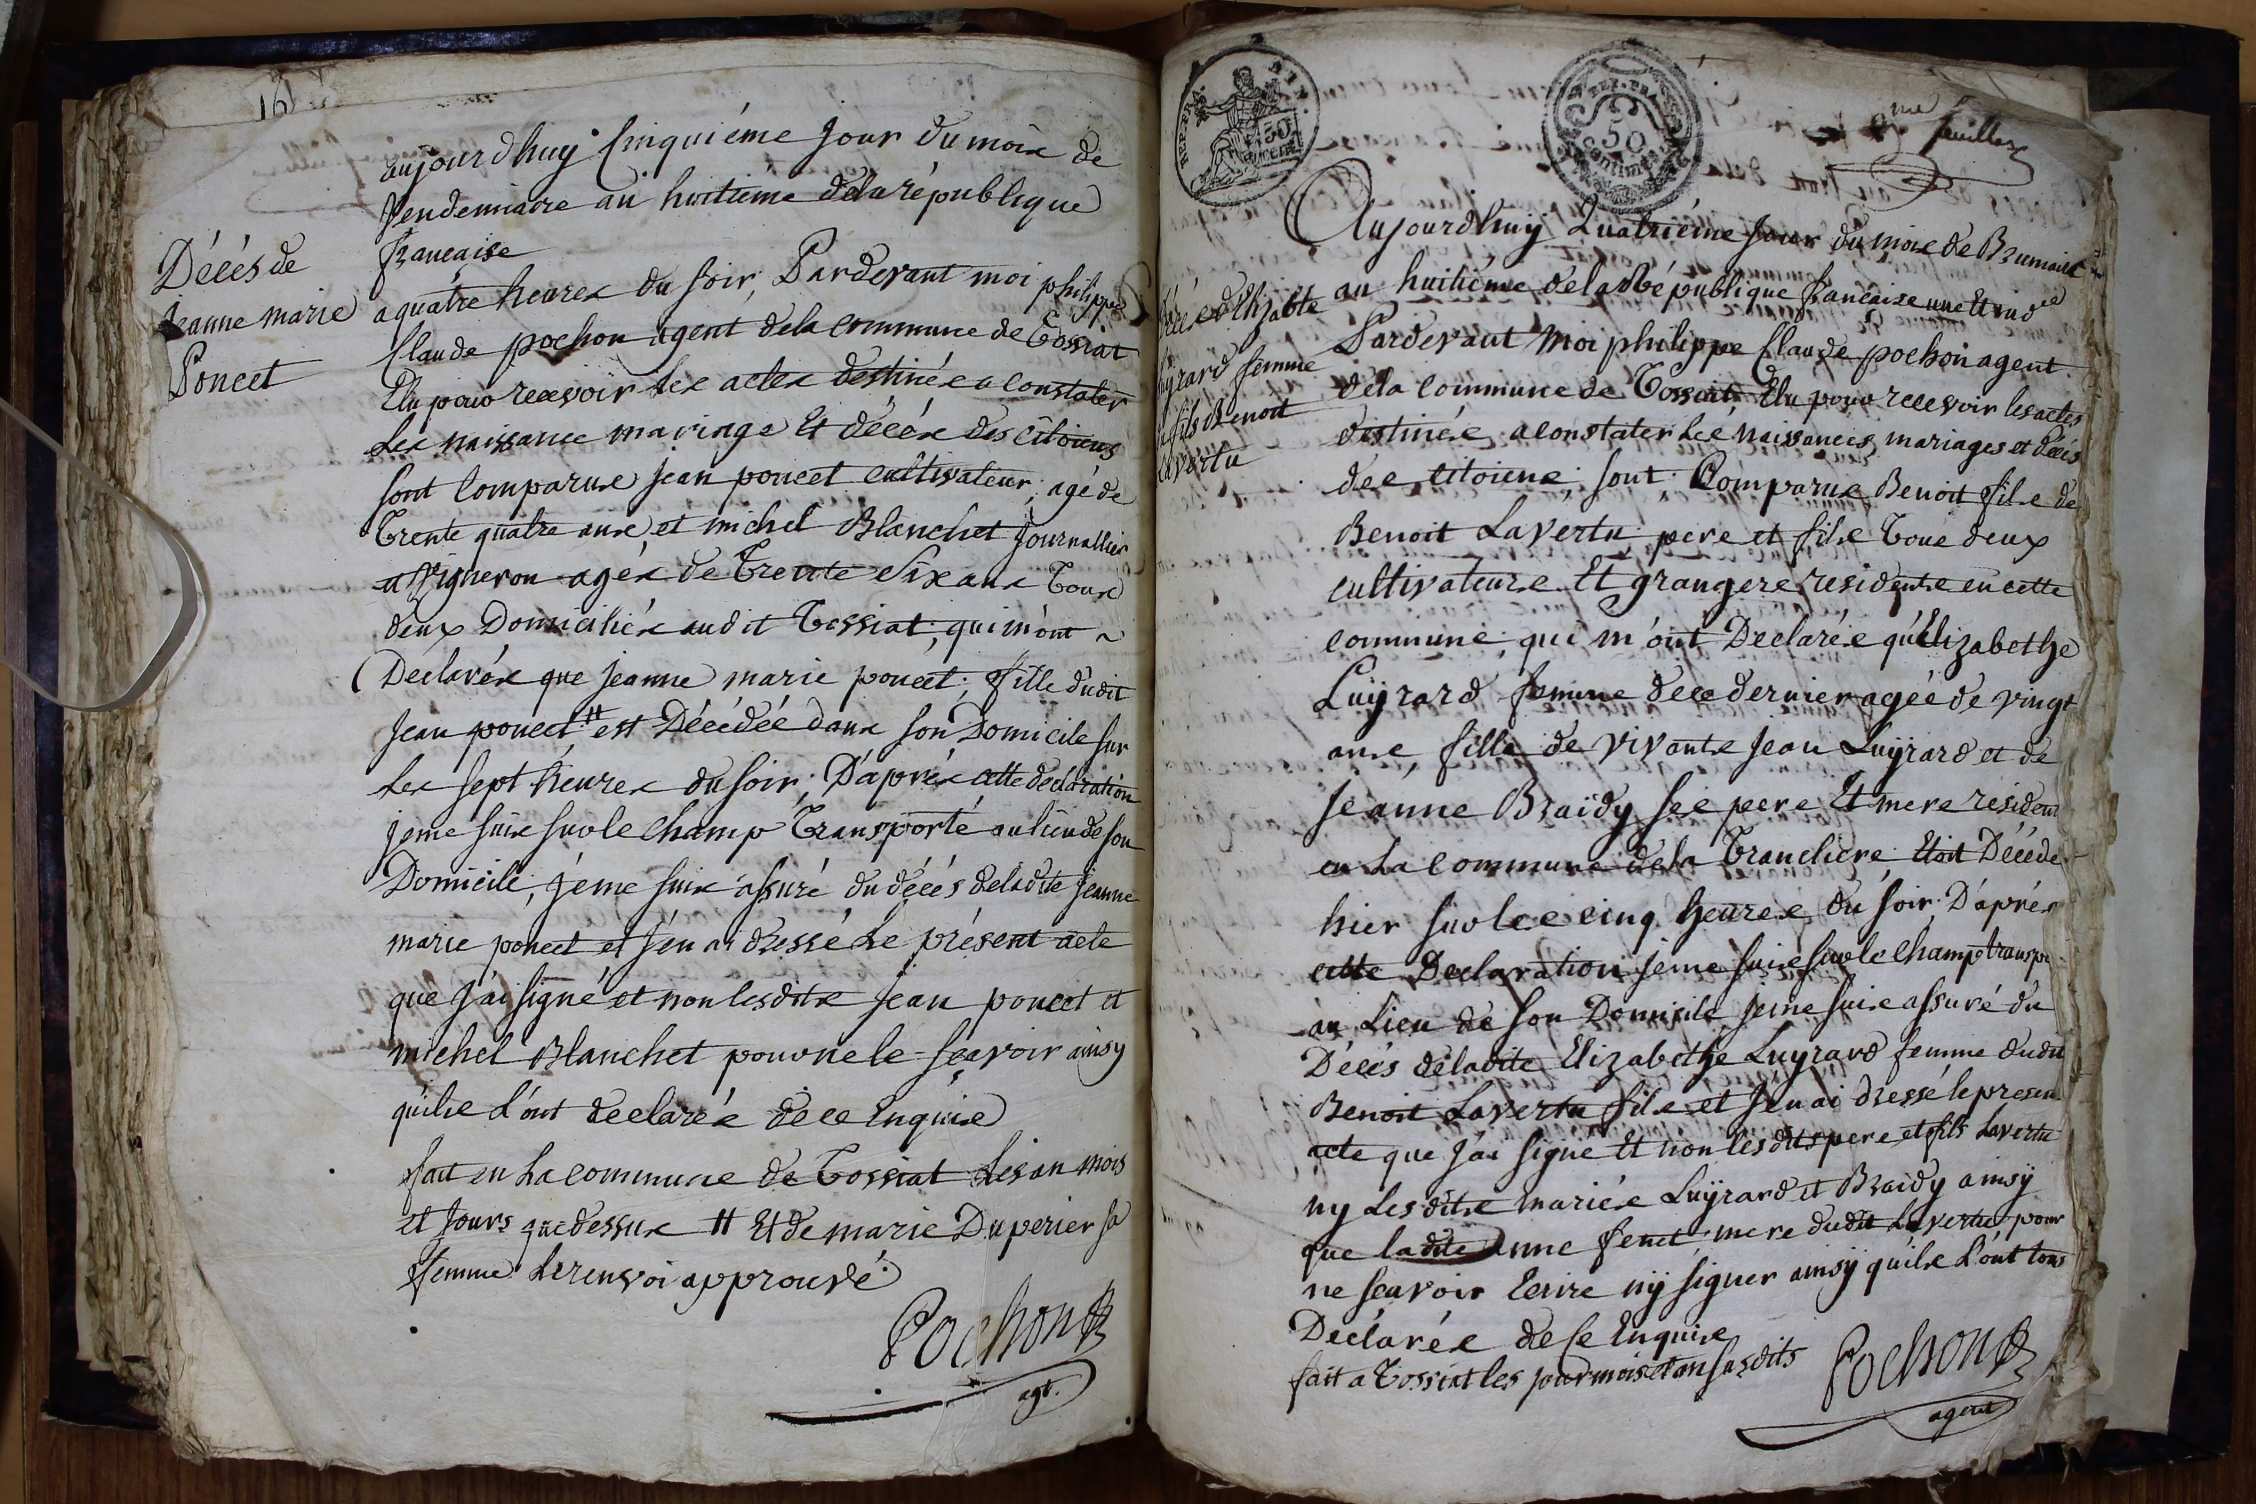 16
aujourdhuy Cinquiéme jour du mois de
Vendemiaire an huitiéme dela république
francaise
Décés de
jeanne marie
Poncet
a quatre heures du soir, Pardevant moi philippe
Claude pochon agent dela commune de Tossiat
Elu pour recevoir les actes destinés a constater
les naissance mariage Et décés des citoiens
sont comparus jean poncet cultivateur, agé de
Trente quatre ans, et michel Blanchet journallier
a Vigneron agés de Trente Six ans Tous
deux Domiciliés audit Tossiat, qui m'ont
Declarés que jeanne marie poncet, fille dudit
jean poncet # est Décédée dans son Domicile sur
les sept heures du soir, D'aprés cette declaration
jeme suis surle champ Transporté au lieu de son
Domicile, jeme suis assuré du décés deladite jeanne
marie poncet et j'en ai dressé le présent acte
que j'ai signé et non lesdits jean poncet et
michel Blanchet pour ne le sçavoir ainsy
quils l'ont declarés de ce Enquis
fait en la commune de Tossiat les an mois
et jours que dessus # Et de marie Duperier sa
femme le renvoi approuvé
Pochon
agt.
REP. FRA.
50
centimes
REP. FRA.
50
centimes
me feuillet
Aujourdhuy Quatriéme jour du mois de Brumaire
an huitiéme dela République francaise une Et ind
Elizabte
femme
fils Benoit
Lavertu
Pardevant moi philippe Claude pochon agent
dela commune de Tossiat, Elu pour recevoir les actes
destinés a constater les naissances, mariages et décés
des citoiens, sont Comparus Benoit fils de
Benoit Lavertu pere et fils Tous deux
cultivateurs Et grangers residents en cette
commune, qui m'ont Declarés qu'Elizabethe
Luÿrard femme dece dernier agée de vingt
ans, fille de vivants jean Luÿrard et de
jeanne Braidy ses peere Et mere resident
en la commune dela Trancliere Etoit Décéde
hier sur les cinq heures du soir D'aprés
cette Declaration jeme suis surle champ transpo
au lieu de son Domicile jeme suis assuré du
Décés deladite Elizabethe Luyrard femme dudit
Benoit Lavertu fils et j'en ai dressé le presen
acte que j'ai signe Et non lesdits pere et fils Lavertu
ny lesdits mariés Luÿrard et Braidy ainsÿ
que ladite Anne fenet mere dudit Lavertu pour
ne sçavoir Ecrire nÿ signer ainsÿ quils l'ont tous
Declarés de ce Enquis
fait a Tossiat les jour mois et an susdits
Pochon
agent